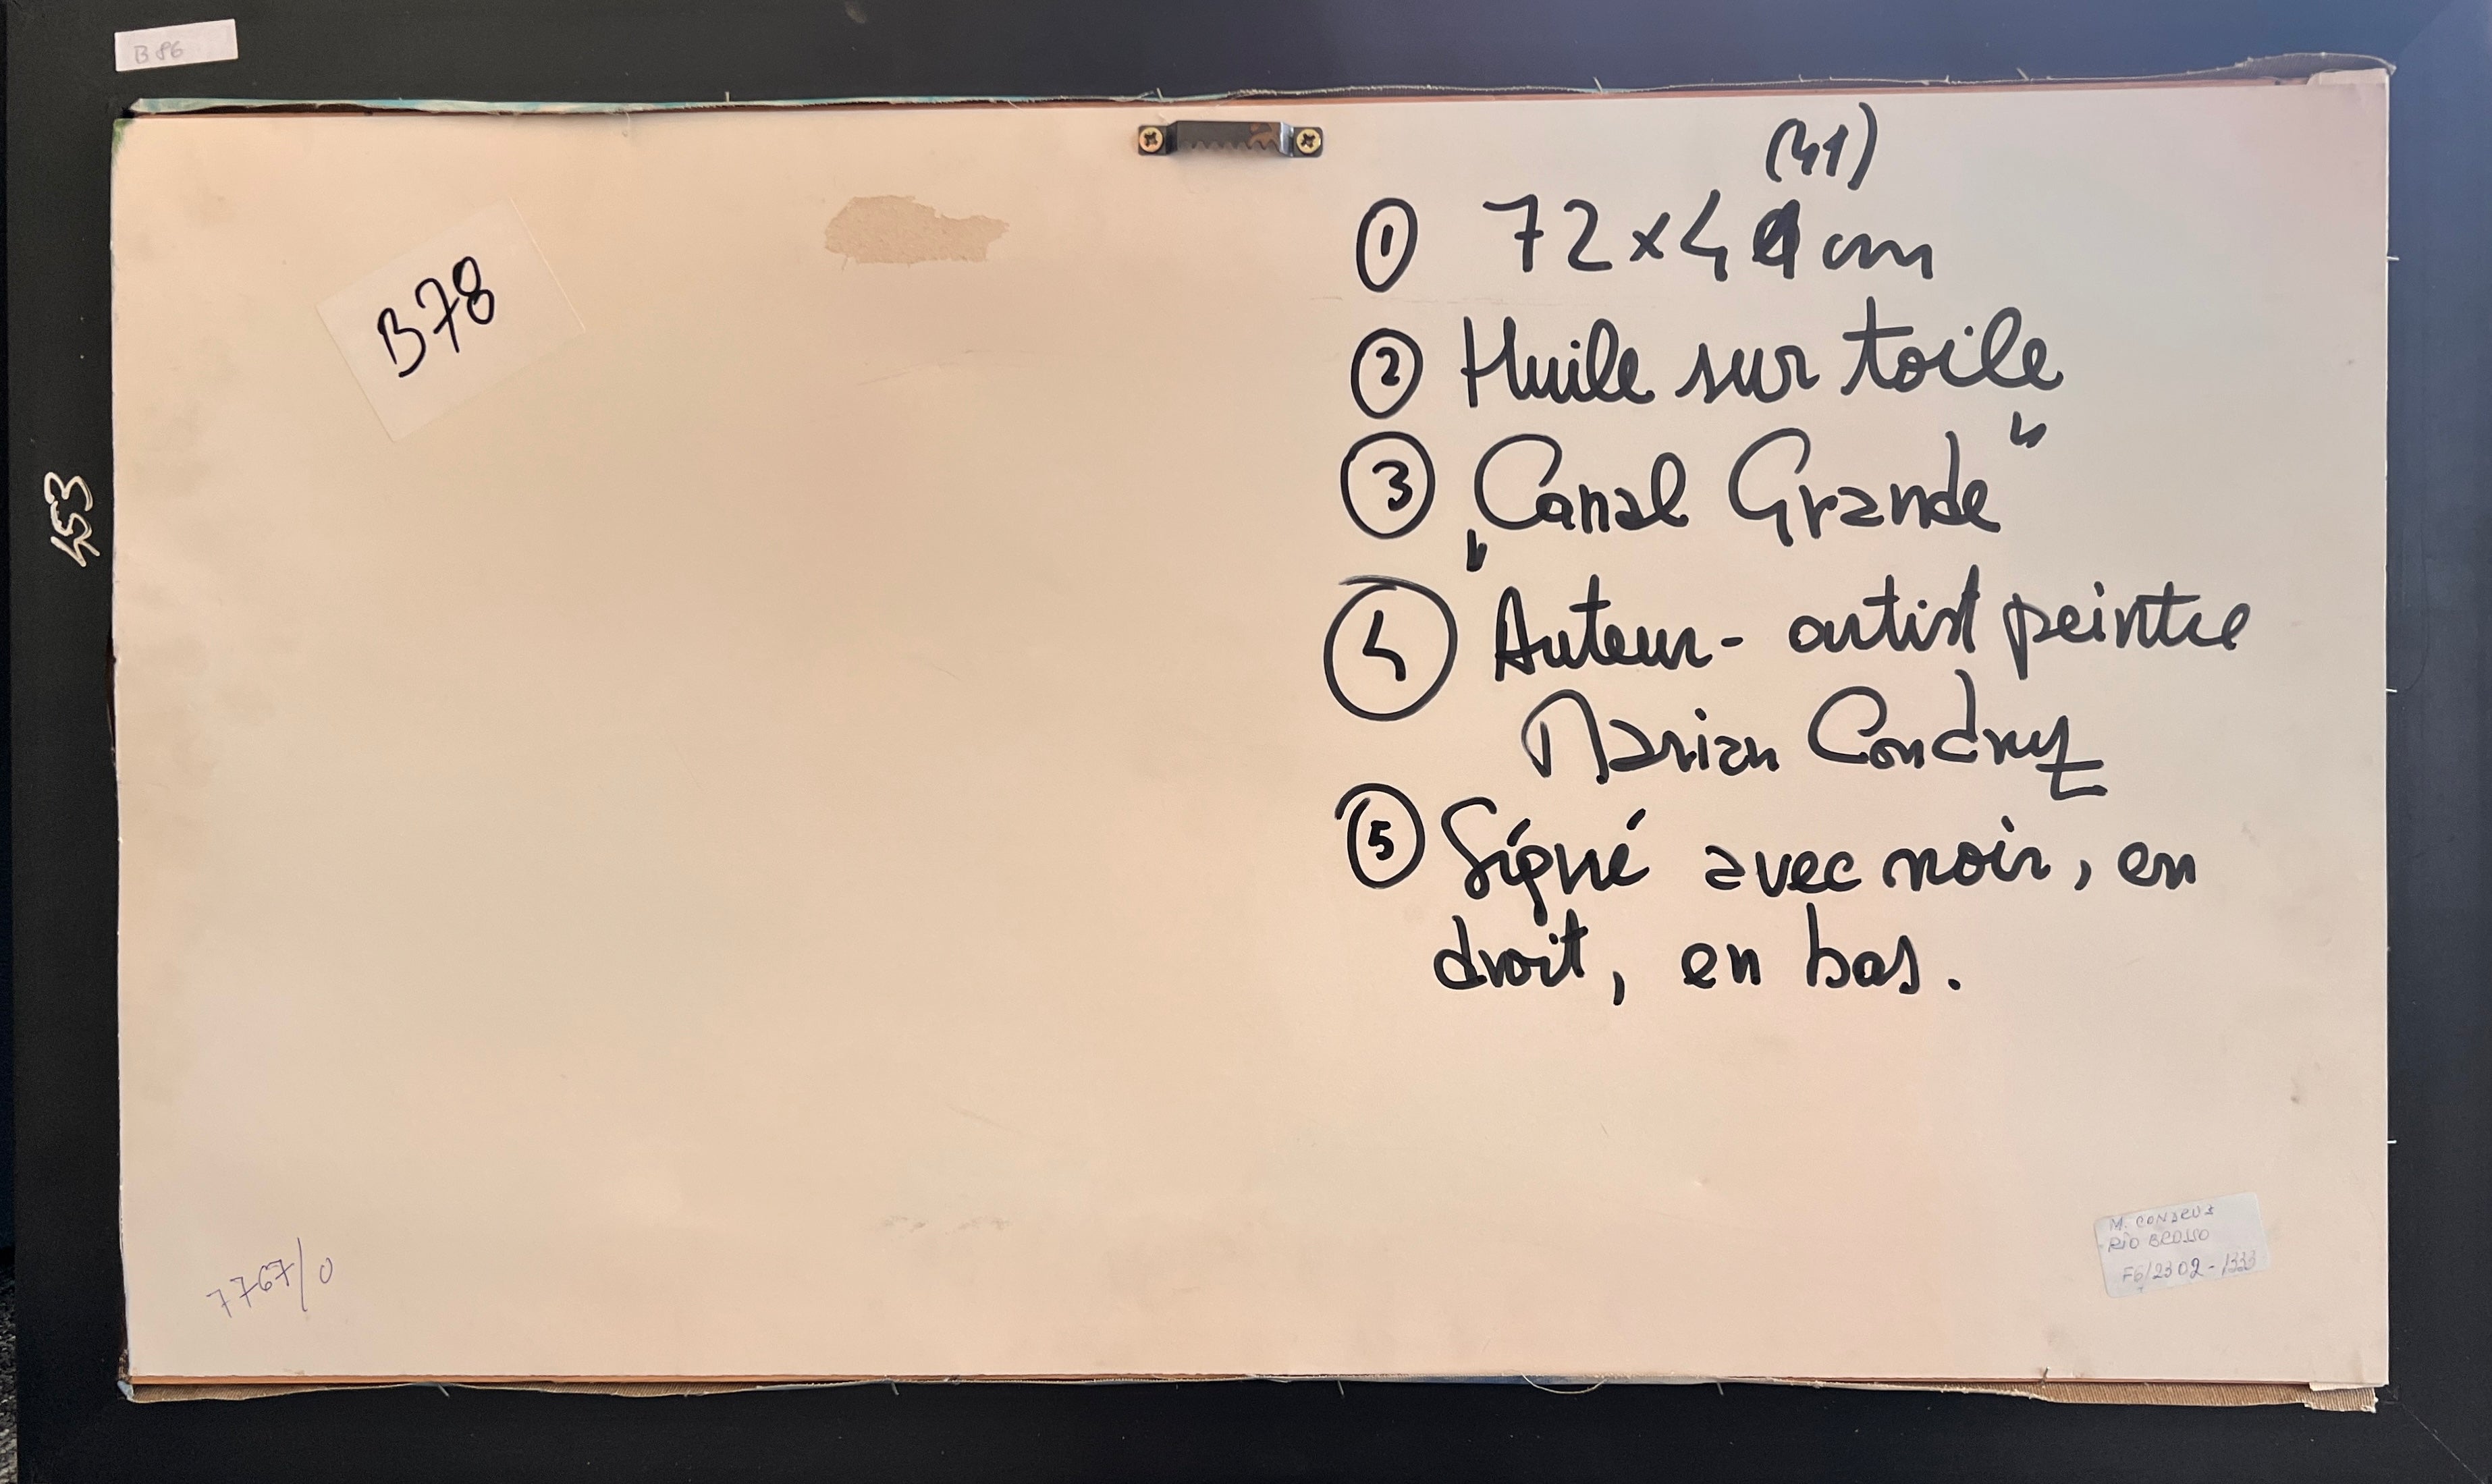 B 86
B78
453
(41)
① 72 x 41 cm
② Huile sur toile
③ „Canal Grande"
④ Auteur - artist peintre
Marian Condruz
⑤ Signé avec noir, en
droit, en bas.
7767/0
M. CONDRUZ
RIO
F6/2302-1333